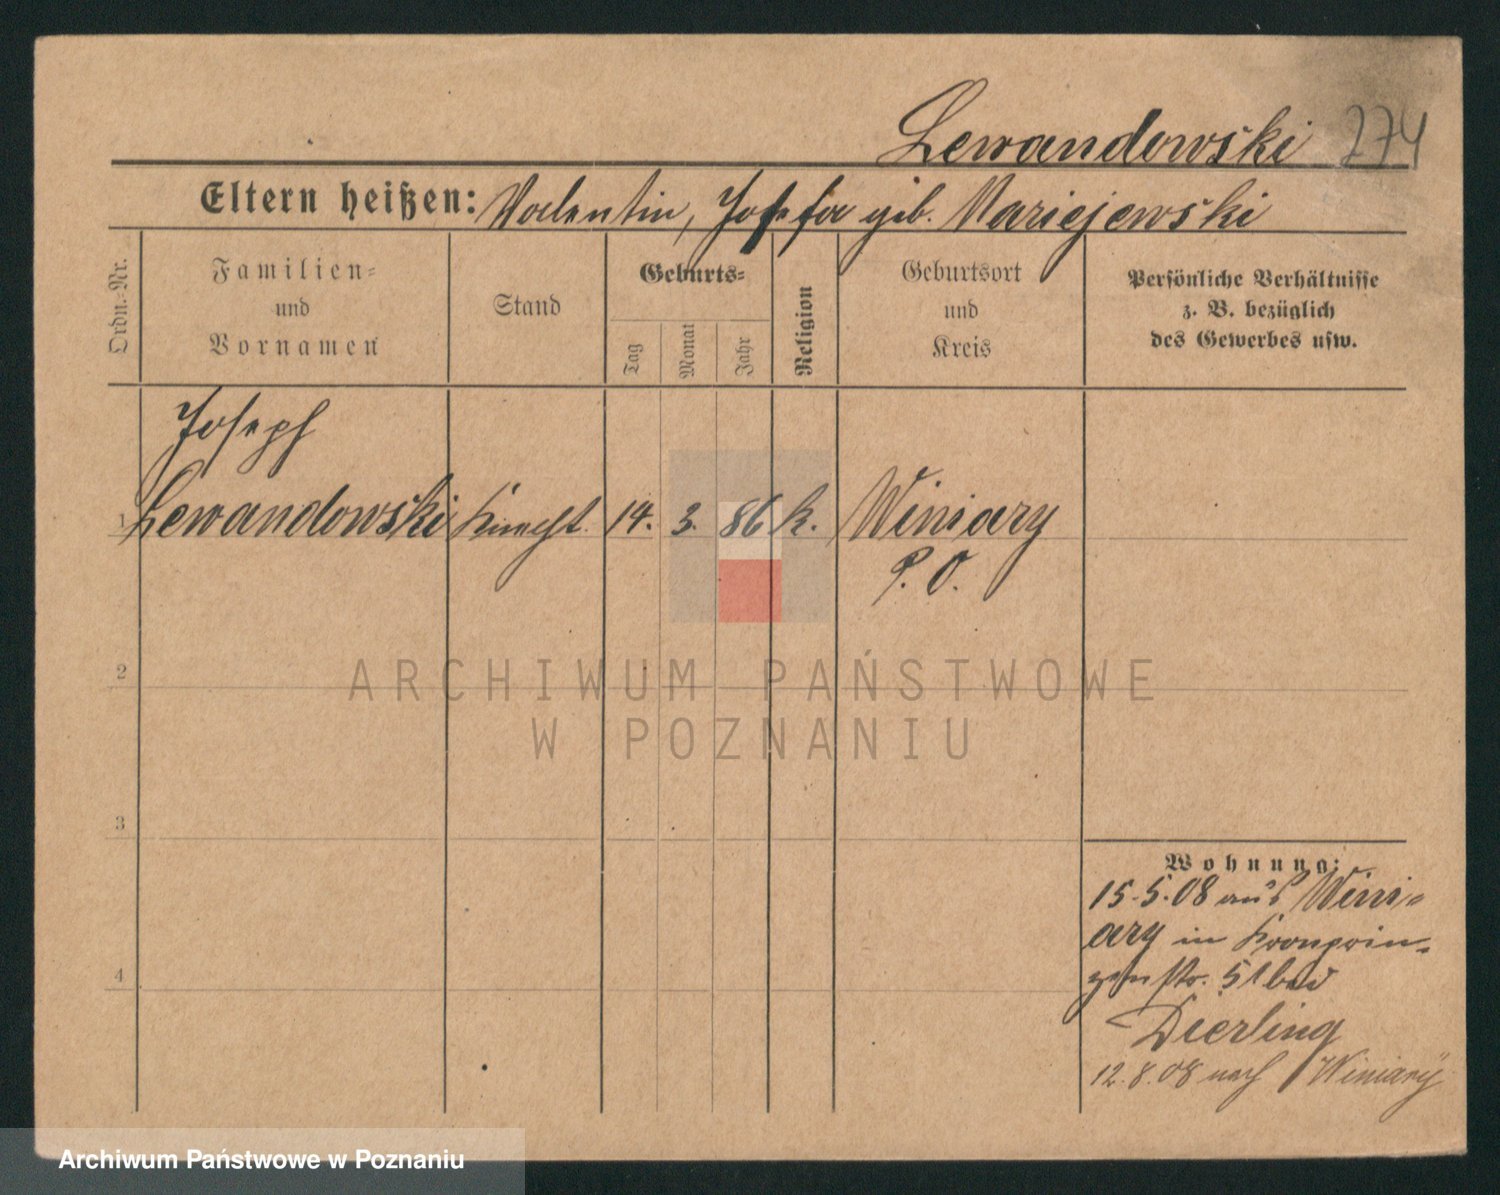 Lewandowski 274
Eltern heißen: Valentin, Josefa geb. Mariejewski
Ordn.-Nr.
Familien-
und
Vornamen
Stand
Geburts-
Tag
Monat
Jahr
Religion
Geburtsort
und
Kreis
Persönliche Verhältnisse
z. B. bezüglich
des Gewerbes usw.
Joseph
1 Lewandowski Knecht. 14. 3. 86 k. Winiary
P. O.
2
ARCHIWUM PAŃSTWOWE
W POZNANIU
3
4
Wohnung:
15.5.08 aus Wini-
ary in Kronprin-
zenstr. 51 bei
Dierling
12.8.08 nach Winiary
Archiwum Państwowe w Poznaniu